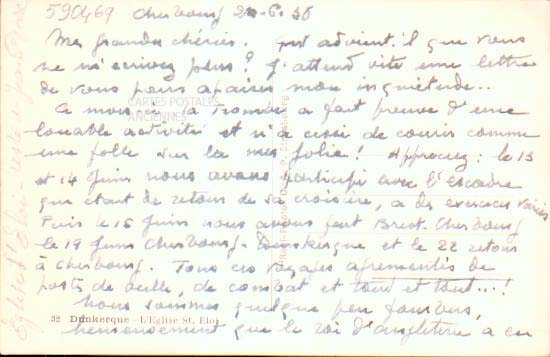 590469 Cherbourg 24-6-38
Mes grandes chéries. qu'advient-il que vous
ne m'écrivez plus? J'attend vite une lettre
de vous pour apaiser mon inquiétude..
Ce mois-ci la Trombe a fait preuve d'une
CARTES POSTALES
ANCIENNES
louable activité et n'a cessé de courir comme
une folle sur la mer jolie! Apprenez: le 13
et 14 Juin nous avons participé avec l'Escadre
qui était de retour de sa croisière, a des exercices variés
Puis le 15 Juin nous avons fait Brest-Cherbourg
le 19 Juin Cherbourg-Dunkerque et le 22 retour
à Cherbourg. Tous ces voyages agrémentés de
postes de veille, de combat et tout et tout...!
Nous sommes quelque peu fourbus,
32 Dunkerque - L'Eglise St. Eloi
heureusement que le roi d'angleterre a eu
Eglise St Eloi